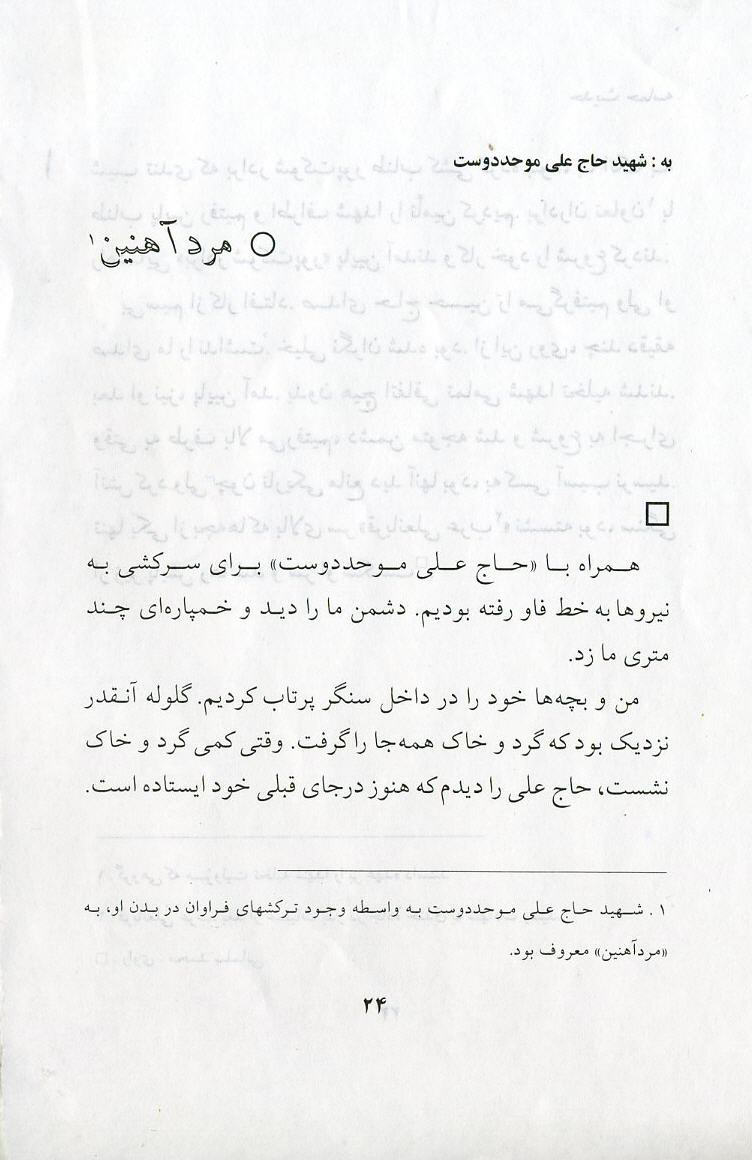 به : شهید حاج علی موحددوست
○ مرد آهنین۱
□
همراه با «حاج علی موحددوست» برای سرکشی به
نیروها به خط فاو رفته بودیم. دشمن ما را دید و خمپاره‌ای چند
متری ما زد.
من و بچه‌ها خود را در داخل سنگر پرتاب کردیم. گلوله آنقدر
نزدیک بود که گرد و خاک همه‌جا را گرفت. وقتی کمی گرد و خاک
نشست، حاج علی را دیدم که هنوز درجای قبلی خود ایستاده است.
۱ . شهید حاج علی موحددوست به واسطه وجود ترکشهای فراوان در بدن او، به
«مردآهنین» معروف بود.
۲۴